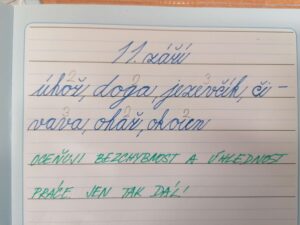 11. září
úhoř, doga, jezevčík, či-
vava, ohař, ohořen
OCEŇUJI BEZCHYBNOST A ÚHLEDNOST
PRÁCE. JEN TAK DÁL!